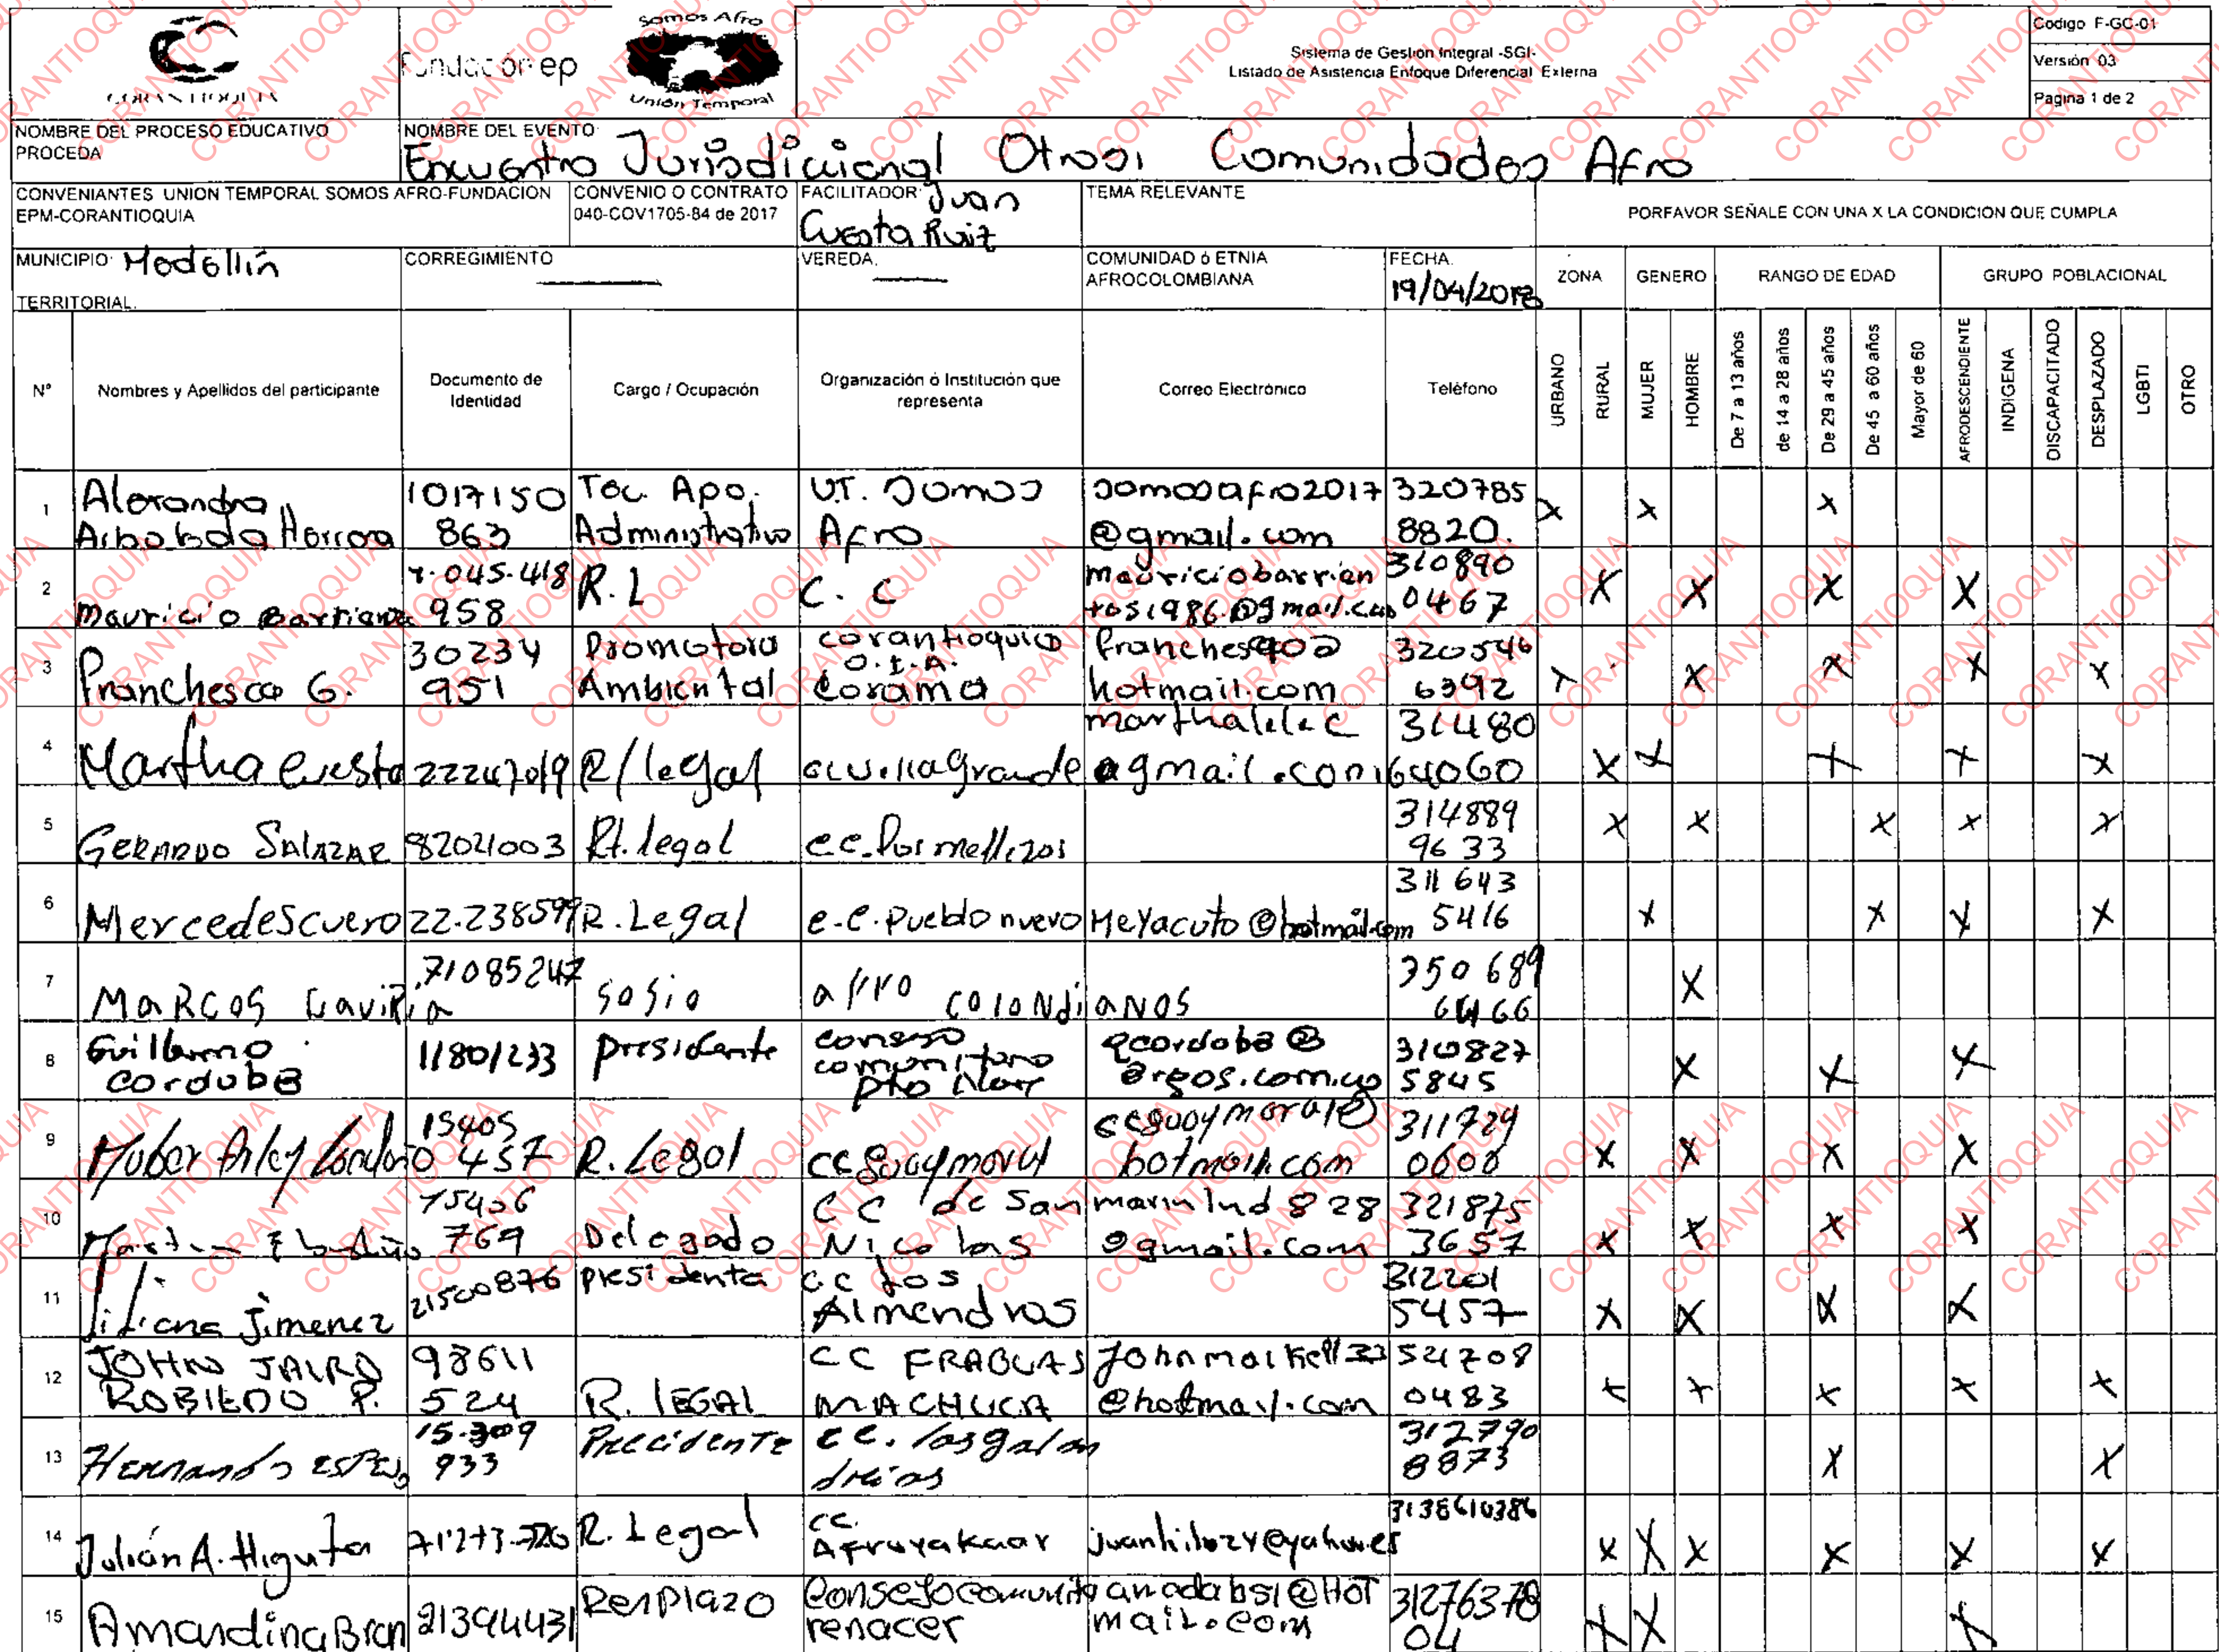 CORANTIOQUIA
Fundación ep
Somos Afro
Unión Temporal
Sistema de Gestión Integral -SGI-
Listado de Asistencia Enfoque Diferencial Externa
Codigo F-GC-01
Versión 03
Pagina 1 de 2
NOMBRE DEL PROCESO EDUCATIVO
PROCEDA
NOMBRE DEL EVENTO:
Encuentro Jurisdiccional Otrosi Comunidades Afro
CONVENIANTES UNION TEMPORAL SOMOS AFRO-FUNDACION
EPM-CORANTIOQUIA
CONVENIO O CONTRATO
040-COV1705-84 de 2017
FACILITADOR: Juan
Cuesta Ruiz
TEMA RELEVANTE
PORFAVOR SEÑALE CON UNA X LA CONDICION QUE CUMPLA
MUNICIPIO: Medellín
TERRITORIAL.
CORREGIMIENTO
VEREDA.
COMUNIDAD ó ETNIA
AFROCOLOMBIANA
FECHA.
19/04/2018
ZONA
GENERO
RANGO DE EDAD
GRUPO POBLACIONAL
N°
Nombres y Apellidos del participante
Documento de
Identidad
Cargo / Ocupación
Organización ó Institución que
representa
Correo Electrónico
Teléfono
URBANO
RURAL
MUJER
HOMBRE
De 7 a 13 años
de 14 a 28 años
De 29 a 45 años
De 45 a 60 años
Mayor de 60
AFRODESCENDIENTE
INDIGENA
DISCAPACITADO
DESPLAZADO
LGBTI
OTRO
1
Alexandra
Arboleda Herrera
1017150
863
Tec. Apo.
Administrativo
UT. Somos
Afro
somosafro2017
@gmail.com
320785
8820.
X X X
2
Mauricio Barrientos
1.045.418
958
R.L
C. C
mauriciobarrien
tos1986@gmail.com
310890
0467
X X X X
3
Franchesco G.
30234
951
Promotora
Ambiental
Corantioquia
O.I.A.
franches902
hotmail.com
320546
6392
X X X X X
4
Martha Cuesta
22247019
R/legal
marthalele.c
@gmail.com
31480
64060
X X X X X
5
GERARDO SALAZAR
82021003
Rt. legal
c.c. Los mellizos
314889
9633
X X X X X
6
Mercedes cuero
22.238599
R. Legal
c.c. Pueblo nuevo
Meyacuto@hotmail.com
311 643
5416
X X X X
7
MARCOS Gaviria
71085247
sosio
afro coloNdiaNOS
350 689
6466
X
8
Guillermo
cordoba
11801233
presidente
consejo
comunitario
pto Nare
gcordoba@
argos.com.co
310827
5845
X X X
9
Huber Arley Londoño
15405
437
R. Legal
ccguaymoral
ccguaymoral@
hotmail.com
311729
0600
X X X X
10
15406
769
Delegado
CC de San
Nicolas
marinlud828
@gmail.com
321875
3657
X X X X
11
Liliana Jimenez
21500876
presidenta
c.c Los
Almendros
312201
5457
X X X X
12
JOHN JAIRO
ROBLEDO P.
98611
524
R. LEGAL
CC FRAGUAS
MACHUCA
@hotmail.com
321708
0483
X X X X X
13
15.309
933
Precidente
c.c. las golon
drias
312790
8873
X X
14
Julián A. Higuita
71'273.720
R. Legal
CC.
Afroyakaar
3138610386
X X X X X X
15
Amandina Bran
21394431
Remplazo
Consejo comunita
renacer
amadabsi@HOT
mail.com
31276370
04
X X X